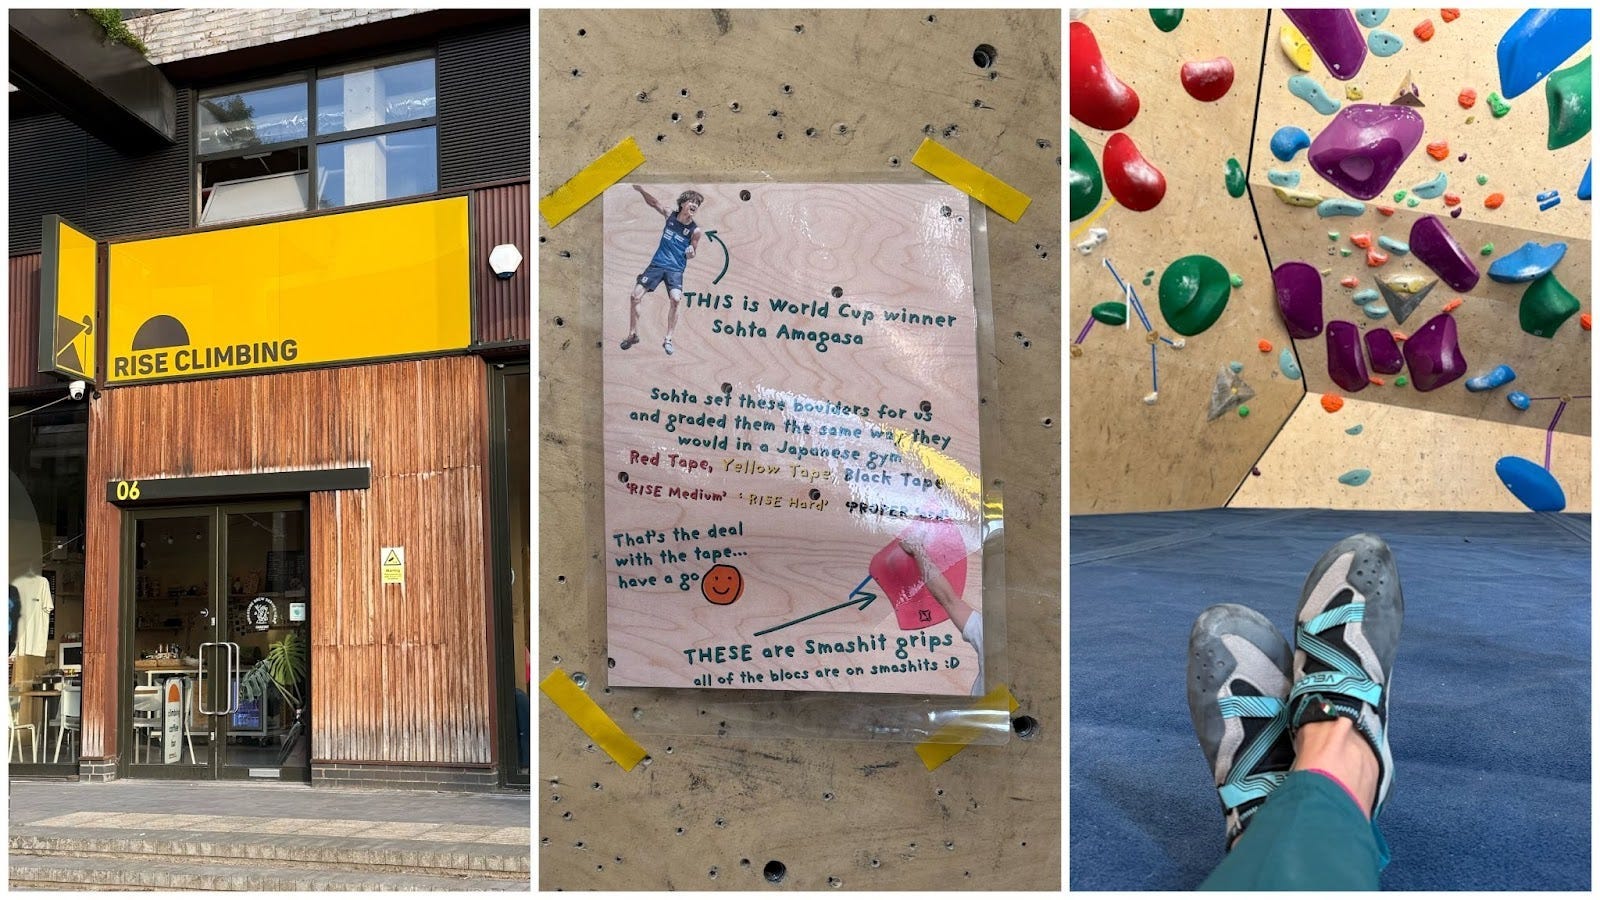 RISE CLIMBING
06
climbing
coffee
bar
THIS is World Cup winner
Sohta Amagasa
Sohta set these boulders for us
and graded them the same way they
would in a Japanese gym
Red Tape, Yellow Tape, Black Tape
'RISE Medium' 'RISE Hard'
That's the deal
with the tape...
have a go
THESE are Smashit grips
all of the blocs are on smashits :D